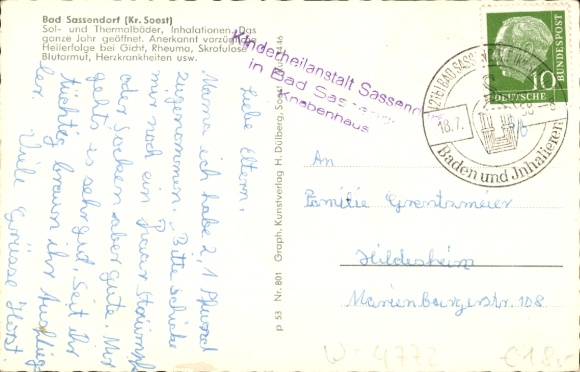 Bad Sassendorf (Kr. Soest)
Sol- und Thermalbäder, Inhalationen. Das
ganze Jahr geöffnet. Anerkannt vorzügliche
Heilerfolge bei Gicht, Rheuma, Skrofulose
Blutarmut, Herzkrankheiten usw.
Kinderheilanstalt Sassendorf
in Bad Sassendorf
Knabenhaus
DEUTSCHE BUNDESPOST
10
(21b) BAD SASSENDORF
18.7.58-8
Baden und Inhalieren
Liebe Eltern,
Mama ich habe 2,1 Pfund
zugenommen. Bitte schicke
mir noch ein Paar Strümpfe
oder Socken aber gute. Mir
gehts es sehr gut. Seit ihr
tüchtig braun ihr
Viele Grüsse Horst.
p 53 Nr. 801 Graph. Kunstverlag H. Dülberg, Soest
An
Familie
Hildesheim
Marienburgerstr. 108
W-4772
€ 18,-